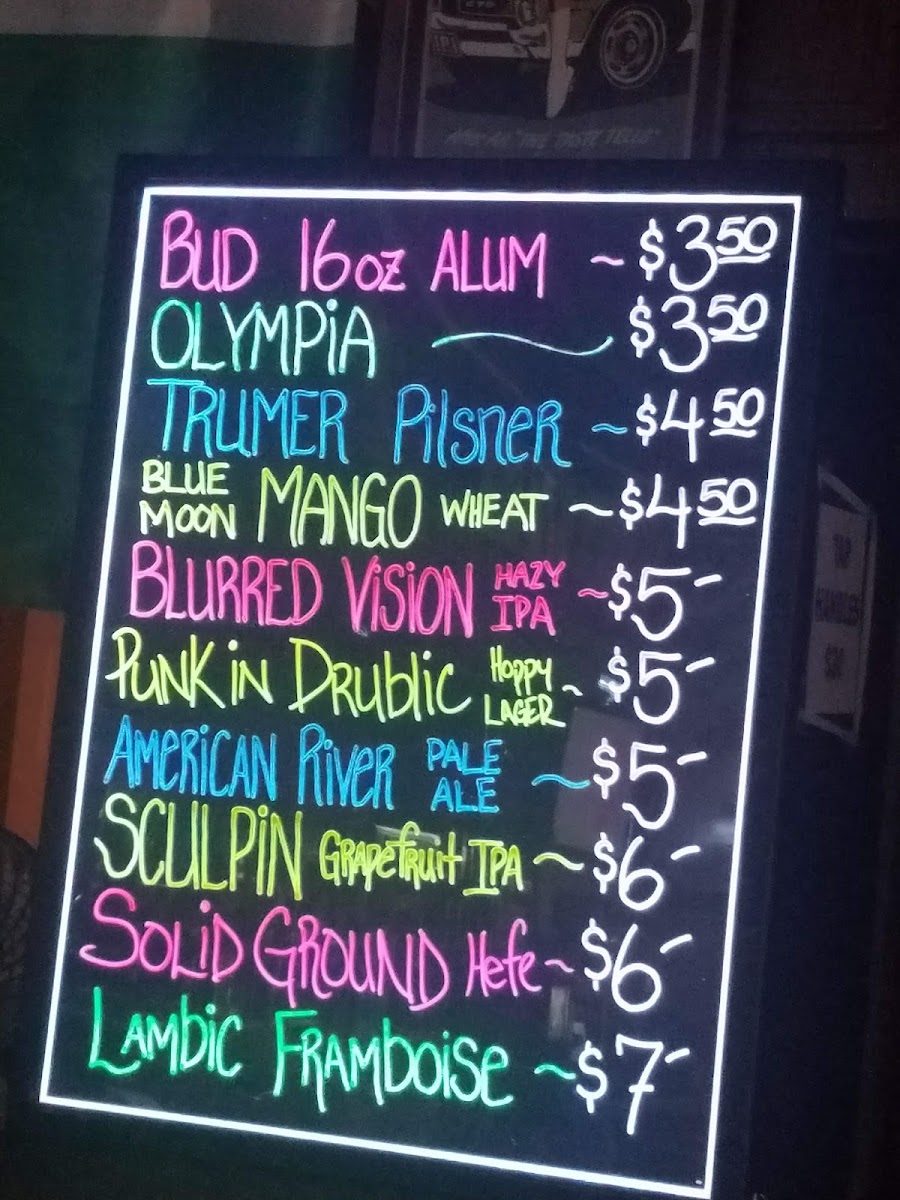 "THE TASTE TELLS"
BUD 16oz ALUM ~ $3.50
OLYMPiA — $3.50
TRUMER Pilsner ~ $4.50
BLUE MOON MANGO WHEAT ~ $4.50
BLURRED VISION HAZY IPA ~ $5-
PUNK iN DRublic Hoppy LAGER ~ $5-
AMERICAN RiveR PALE ALE ~ $5-
SCULPiN GRApefruit IPA ~ $6-
SOLiD GROUND Hefe ~ $6-
LAMbic FRAMboise ~ $7-
TAP
HANDLES
$30